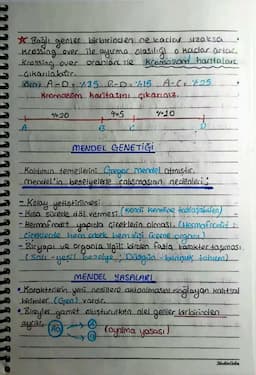 ★ Bağlı genler birbirinden ne kadar uzaksa
krossing over ile ayrılma olasılığı o kadar artar.
Krossing over oranları ile kromozom haritaları
çıkarılabilir.
A-D: %35 B-D: %15 A-C: %25
Kromozom haritasını çıkarınız.
%20 %5 %10
A B C D
MENDEL GENETİĞİ
Kalıtımın temellerini Gregor mendel atmıştır.
mendel'in bezelyelerle çalışmasının nedenleri;
- Kolay yetiştirilmesi
- Kısa sürede döl vermesi (kendi kendine tozlaşabilen)
- Hermafrodit yapıda çiçeklerin olması. (Hermafrodit:
Çiçeklerde hem erkek hem dişi üreme organı)
- Birçok ve organla ilgili birden fazla karakter taşıması
(Sarı-yeşil bezelye; Düzgün-buruşuk tohum)
MENDEL YASALARI
• Karakterlerin yeni nesillere aktarılmasını sağlayan kalıtsal
birimler (Gen) vardır.
• Bireyler gamet oluştururken alel genler birbirinden
ayrılır. Aa A a (ayrılma yasası)